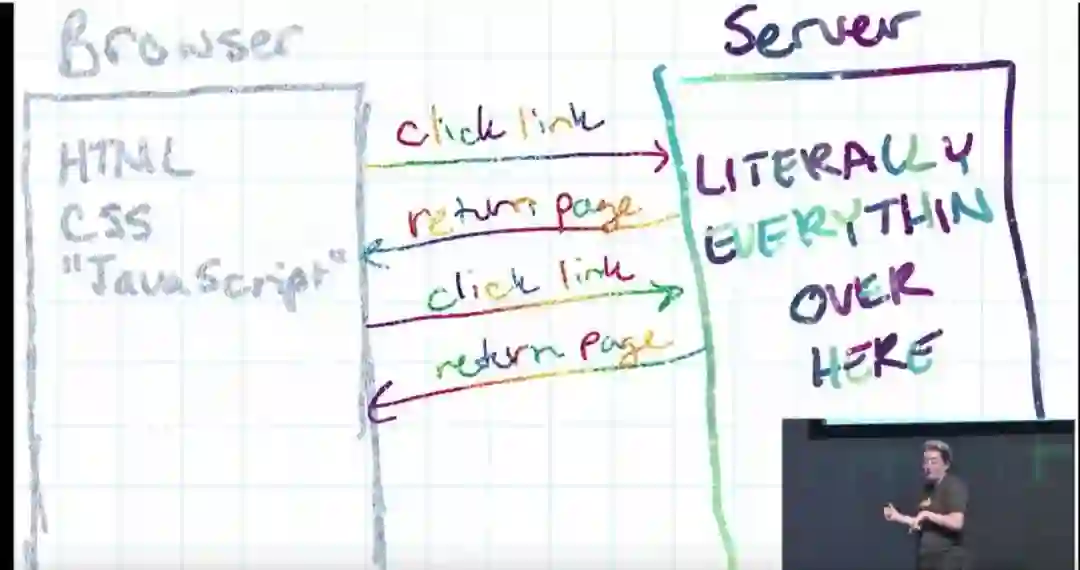 Browser
HTML
CSS
"JavaScript"
click link
return page
click link
return page
Server
LITERALLY
EVERYTHIN
OVER
HERE